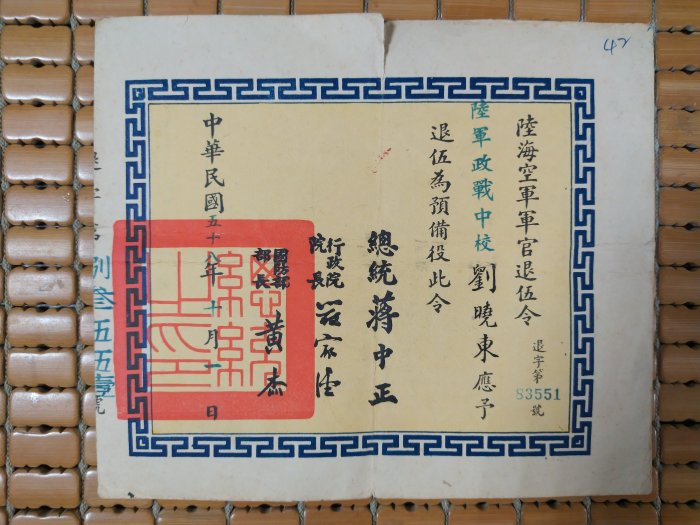 42
陸海空軍軍官退伍令
退字第83551號
陸軍政戰中校劉曉東應予
退伍為預備役此令
總統蔣中正
行政院院長嚴家淦
國防部部長黃杰
中華民國五十八年十月一日
總統之印
捌叁伍伍壹號